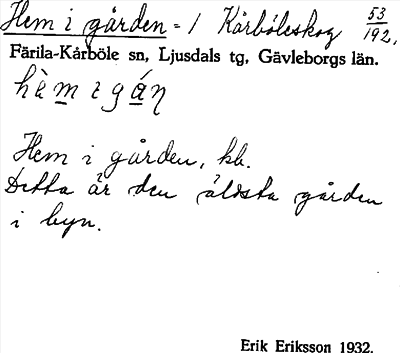 Hem i gården = 1 Kårböleskog 53/192,
Färila-Kårböle sn, Ljusdals tg, Gävleborgs län.
hèm i gán
Hem i gården, hb.
Detta är den äldsta gården
i byn.
Erik Eriksson 1932.